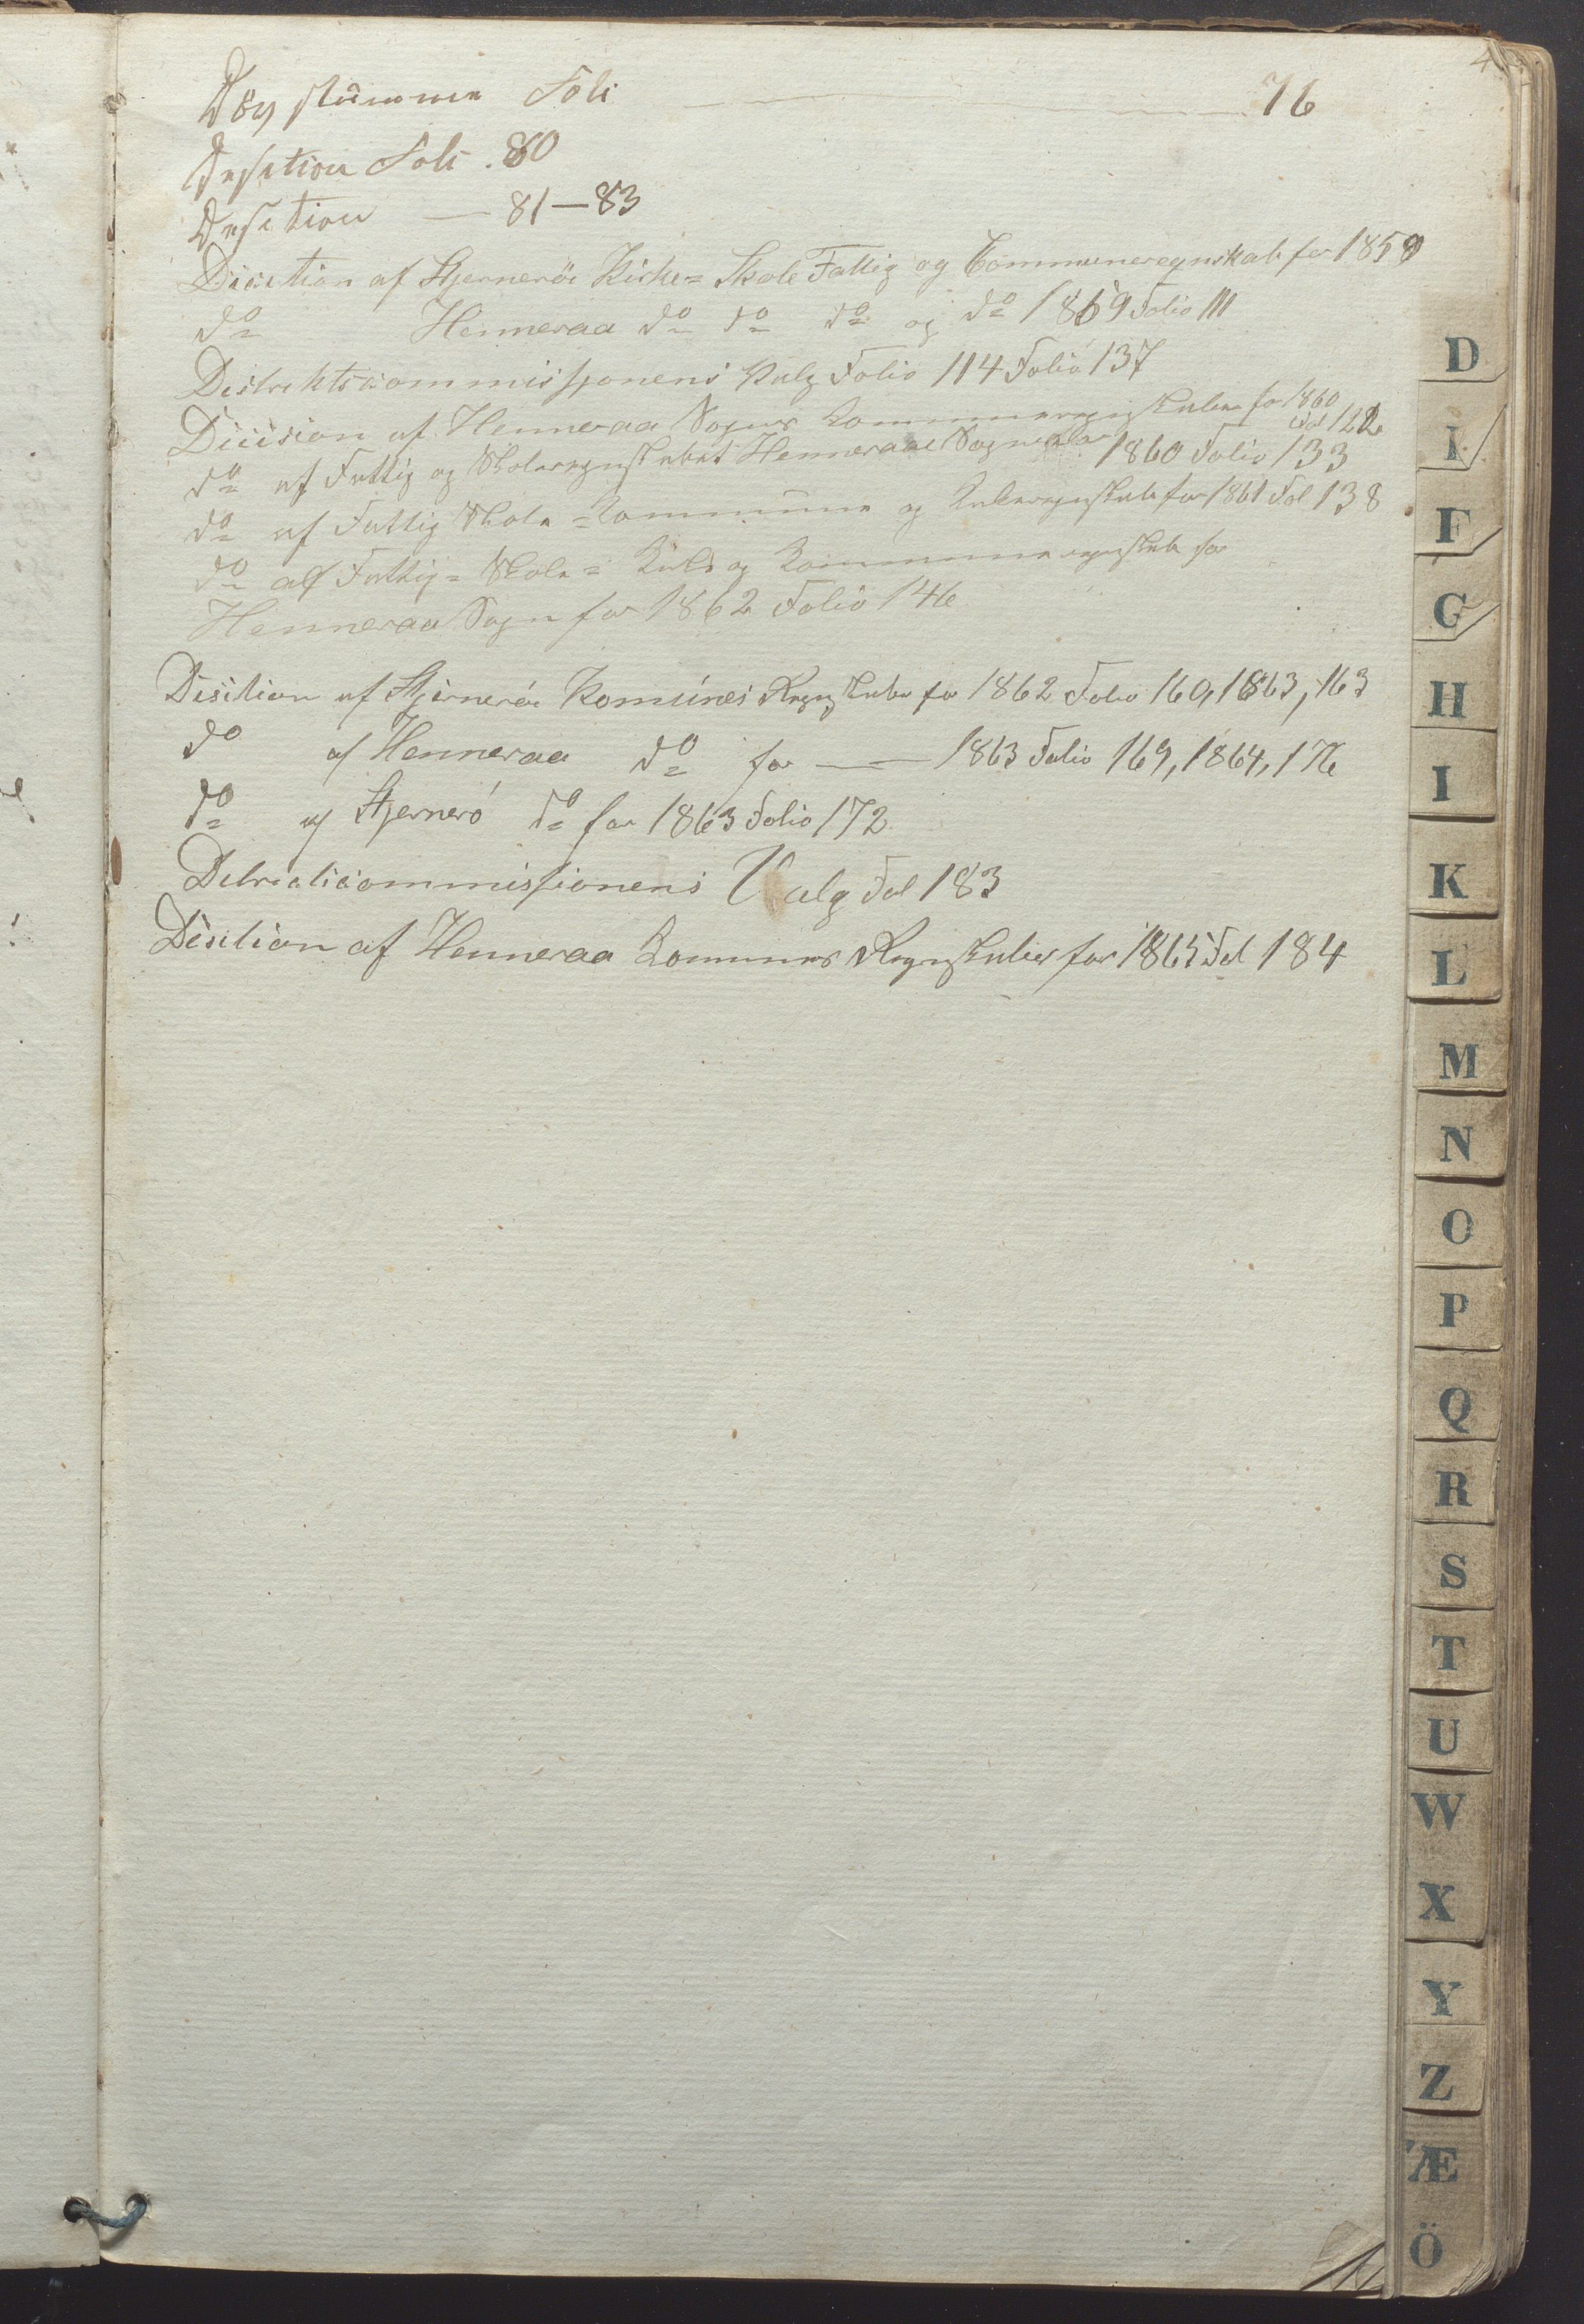 4
Döv stümme Foli 76
Desition Foli . 80
Desition — 81 — 83
Disition af Hjernerói Kirke= Skole Fattig og Commüneregnskab for 1859
do Henneraa do do do og do 1869 Folio 111
Distriktscommissjonens Valg Folio 114 Folio 137
Dicision af Henneraa Sogns Kommüneregnskaber for 1860
Fol 122
do af Fattig og Skoleregnskabet Henneraae Sogn for 1860 Folio 133
do af Fattig Skole =Kommüne og regnskab for 1861 Fol 138
do af Fattig= Skole= og Kommüneregnskab for
Henneraa Sogn for 1862 Folio 146
Disition af Hjernerói Komünes Regnskaber for 1862 Folio 160, 1863, 163
do af Henneraa do for — 1863 Folio 169, 1864, 176
do af Hjerneró do for 1863 Folio 172
Valg Fol 183
Desition af Henneraa Kommunes Regnskaber for 1865 Fol 184
D
I
F
G
H
I
K
L
M
N
O
P
Q
R
S
T
U
W
X
Y
Z
Æ
Ö